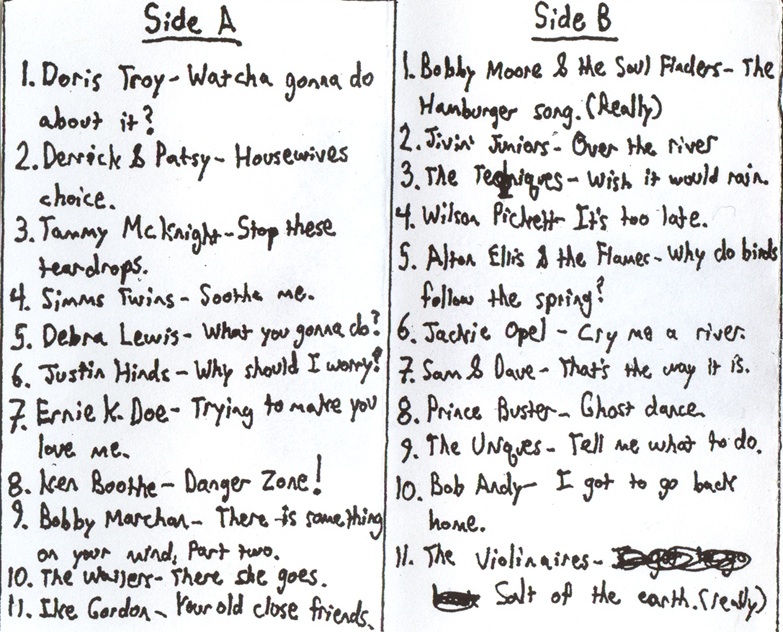 Side A
1. Doris Troy - Watcha gonna do
about it?
2. Derrick & Patsy - Housewives
choice.
3. Tammy McKnight - Stop these
teardrops.
4. Simms Twins - Soothe me.
5. Debra Lewis - What you gonna do?
6. Justin Hinds - Why should I worry?
7. Ernie K. Doe - Trying to make you
love me.
8. Ken Boothe - Danger Zone!
9. Bobby Marchan - There is something
on your mind, Part two.
10. The Wailers - There she goes.
11. Ike Gordon - Your old close friends.
Side B
1. Bobby Moore & the Soul Finders - The
Hamburger song. (Really)
2. Jivin' Juniors - Over the river
3. The Techniques - Wish it would rain.
4. Wilson Pickett - It's too late.
5. Alton Ellis & the Flames - Why do birds
follow the spring?
6. Jackie Opel - Cry me a river.
7. Sam & Dave - That's the way it is.
8. Prince Buster - Ghost dance.
9. The Uniques - Tell me what to do.
10. Bob Andy - I got to go back
home.
11. The Violinaires -
Salt of the earth. (really)